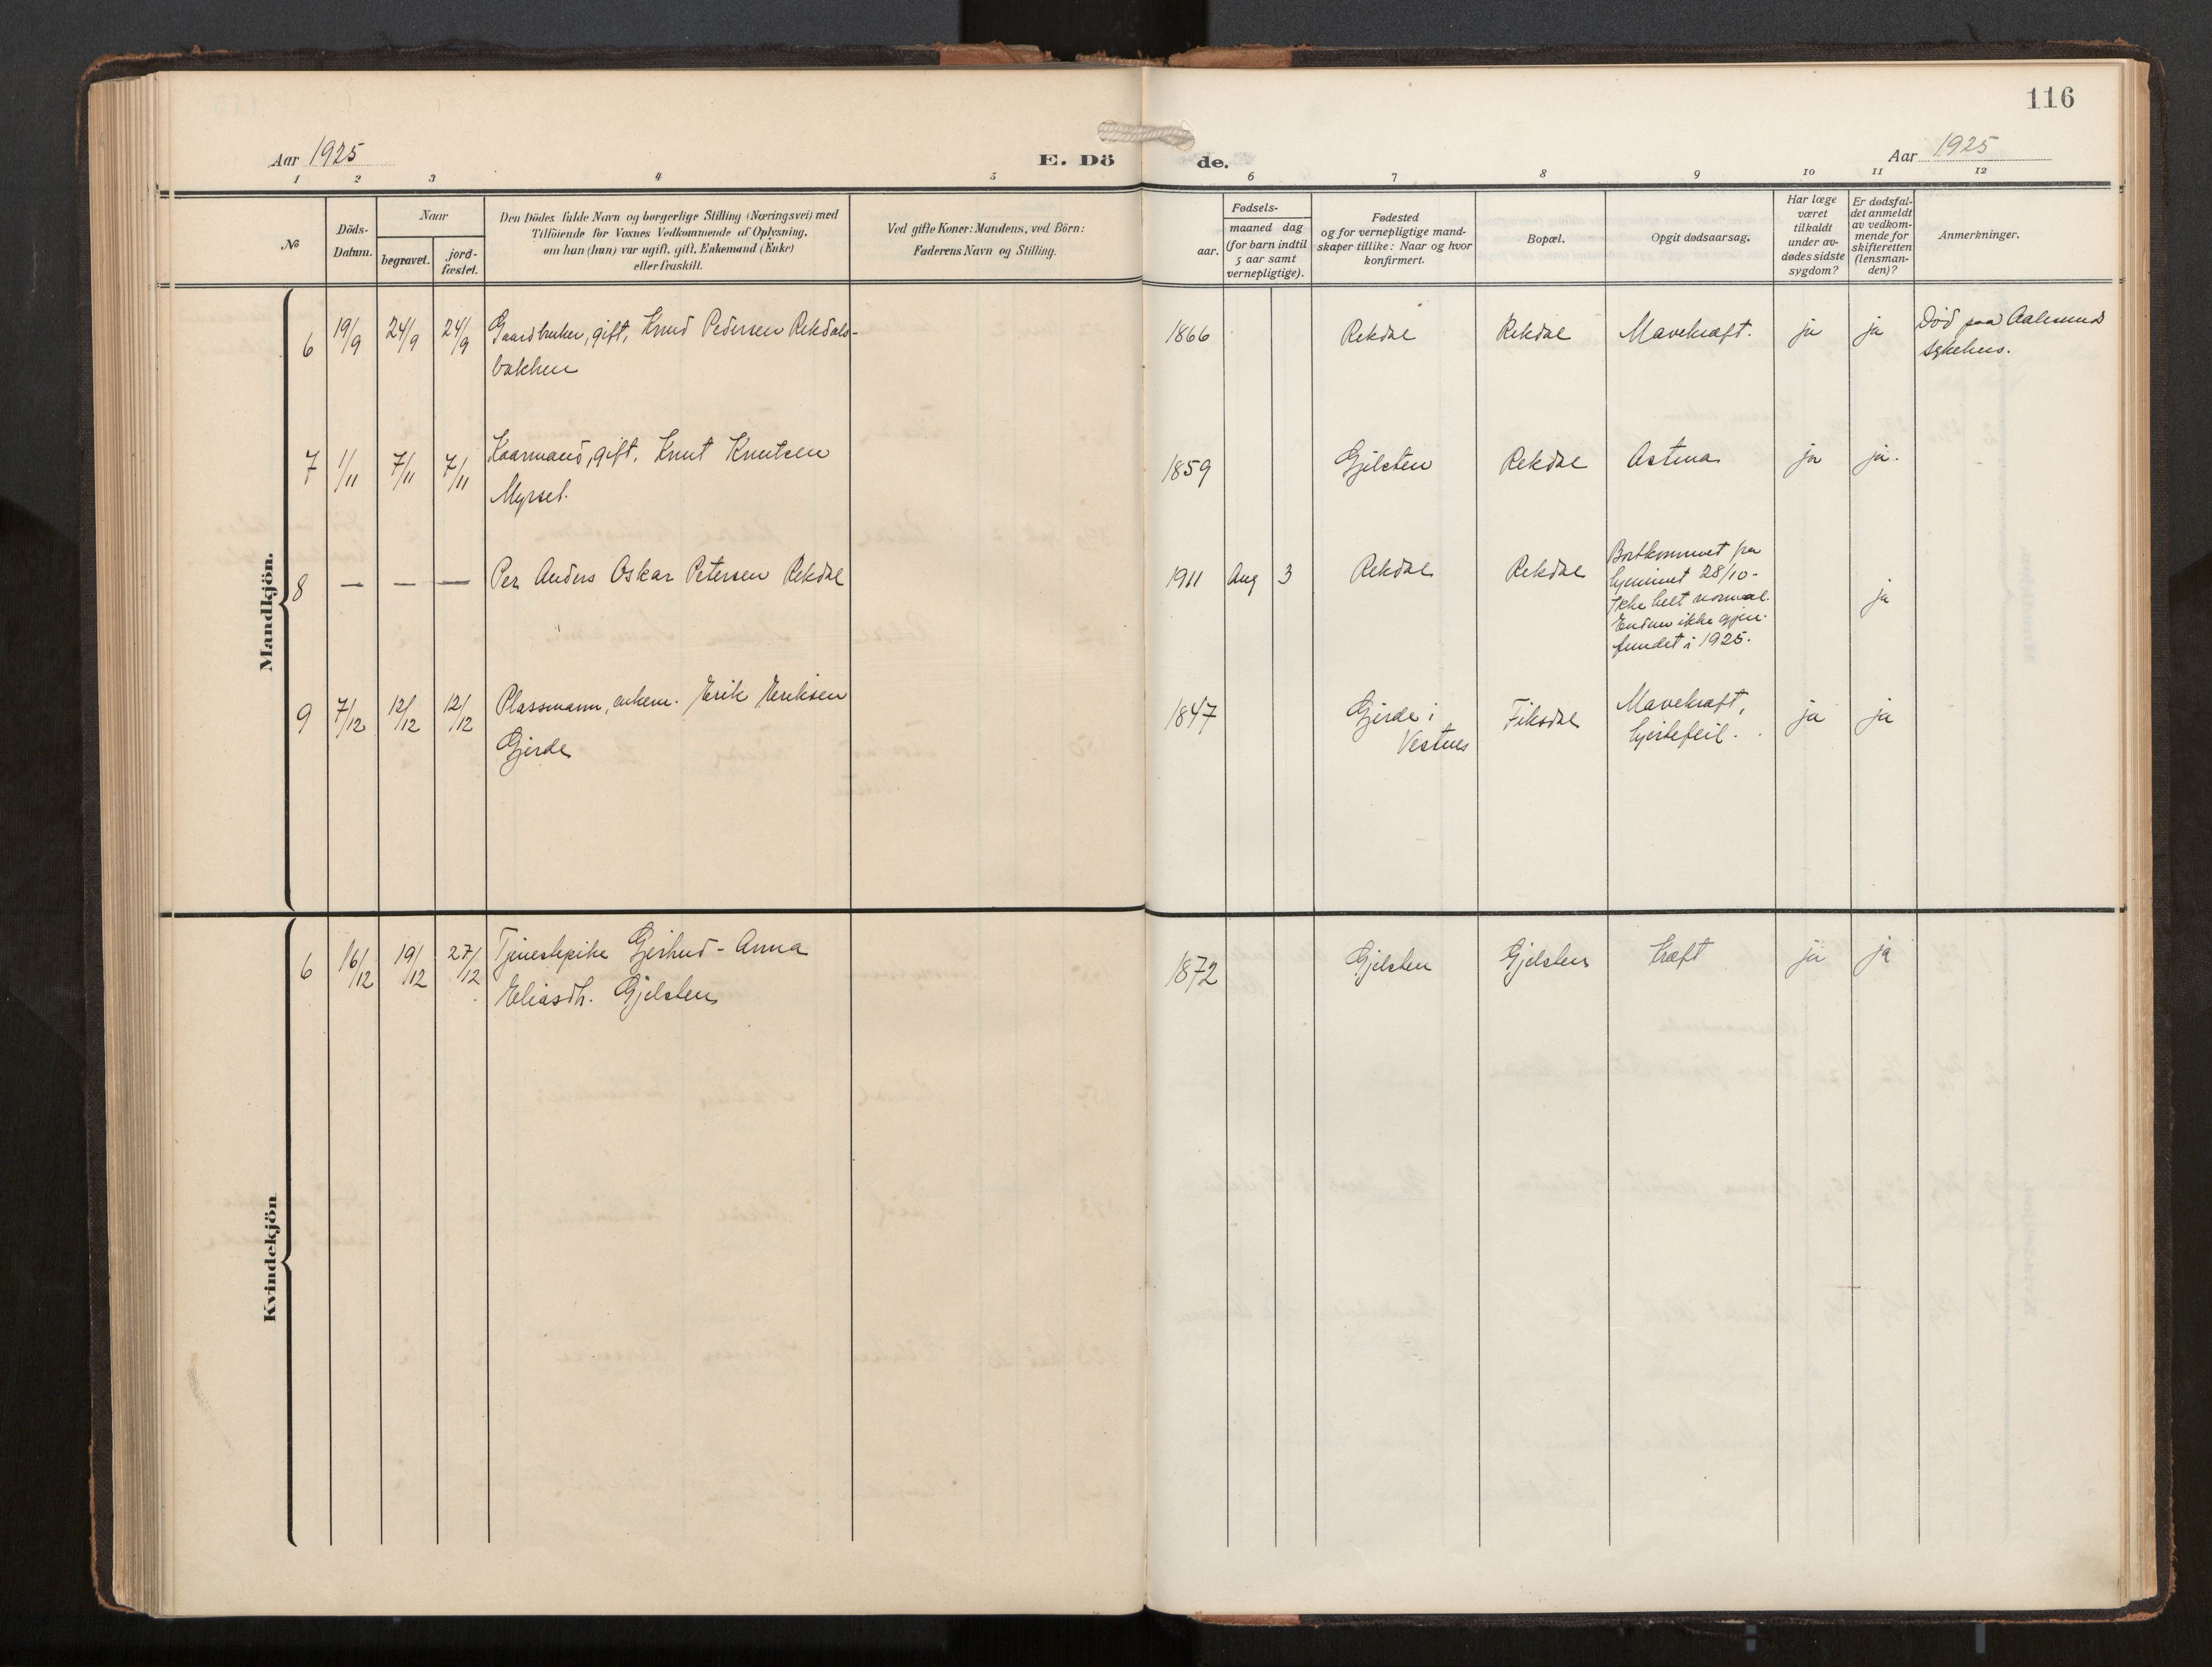 116
Aar 1925
E. Dö
de.
Aar 1925
1 2 3 4 5 6 7 8 9 10 11 12
No
Döds-
Datum.
Naar
begravet.
jord-
fæstet.
Den Dödes fulde Navn og borgerlige Stilling (Næringsvei) med
Tilföiende for Voxnes Vedkommende af Oplysning,
om han (hun) var ugift, gift, Enkemand (Enke)
eller fraskilt.
Ved gifte Koner: Mandens, ved Börn:
Faderens Navn og Stilling.
Fødsels-
aar.
maaned dag
(for barn indtil
5 aar samt
vernepligtige).
Fødested
og for vernepligtige mand-
skaper tillike: Naar og hvor
konfirmert.
Bopæl.
Opgit dødsaarsag.
Har læge
været
tilkaldt
under av-
dødes sidste
sygdom?
Er dødsfal-
det anmeldt
av vedkom-
mende for
skifteretten
(lensman-
den)?
Anmerkninger.
Mandkjön.
6 19/9 24/9 24/9 Gaardbruker, gift, Knud Pedersen Rekdals-
bakken
1866 Rekdal Rekdal Mavekræft. ja ja Død paa Aalesund
sykehus.
7 1/11 7/11 7/11 Kaarmand, gift. Knut Knutsen
Myrset.
1859 Gjelsten Rekdal Astma ja ja.
8 — — — Per Anders Oskar Petersen Rekdal
1911 Aug 3 Rekdal Rekdal Bortkommet fra
hjemmet 28/10-
Ikke helt normal.
Endnu ikke gjen-
fundet i 1925.
ja
9 7/12 12/12 12/12 Plassmann, enkem. Erik Eriksen
Gjerde
1847 Gjerde i
Vestnes
Fiksdal Mavekræft,
hjertefeil.
ja ja
Kvindekjön
6 16/12 19/12 27/12 Tjenestepike Gjerhud-Anna
Eliasdh. Gjelsten
1872 Gjelsten Gjelsten Kræft ja ja